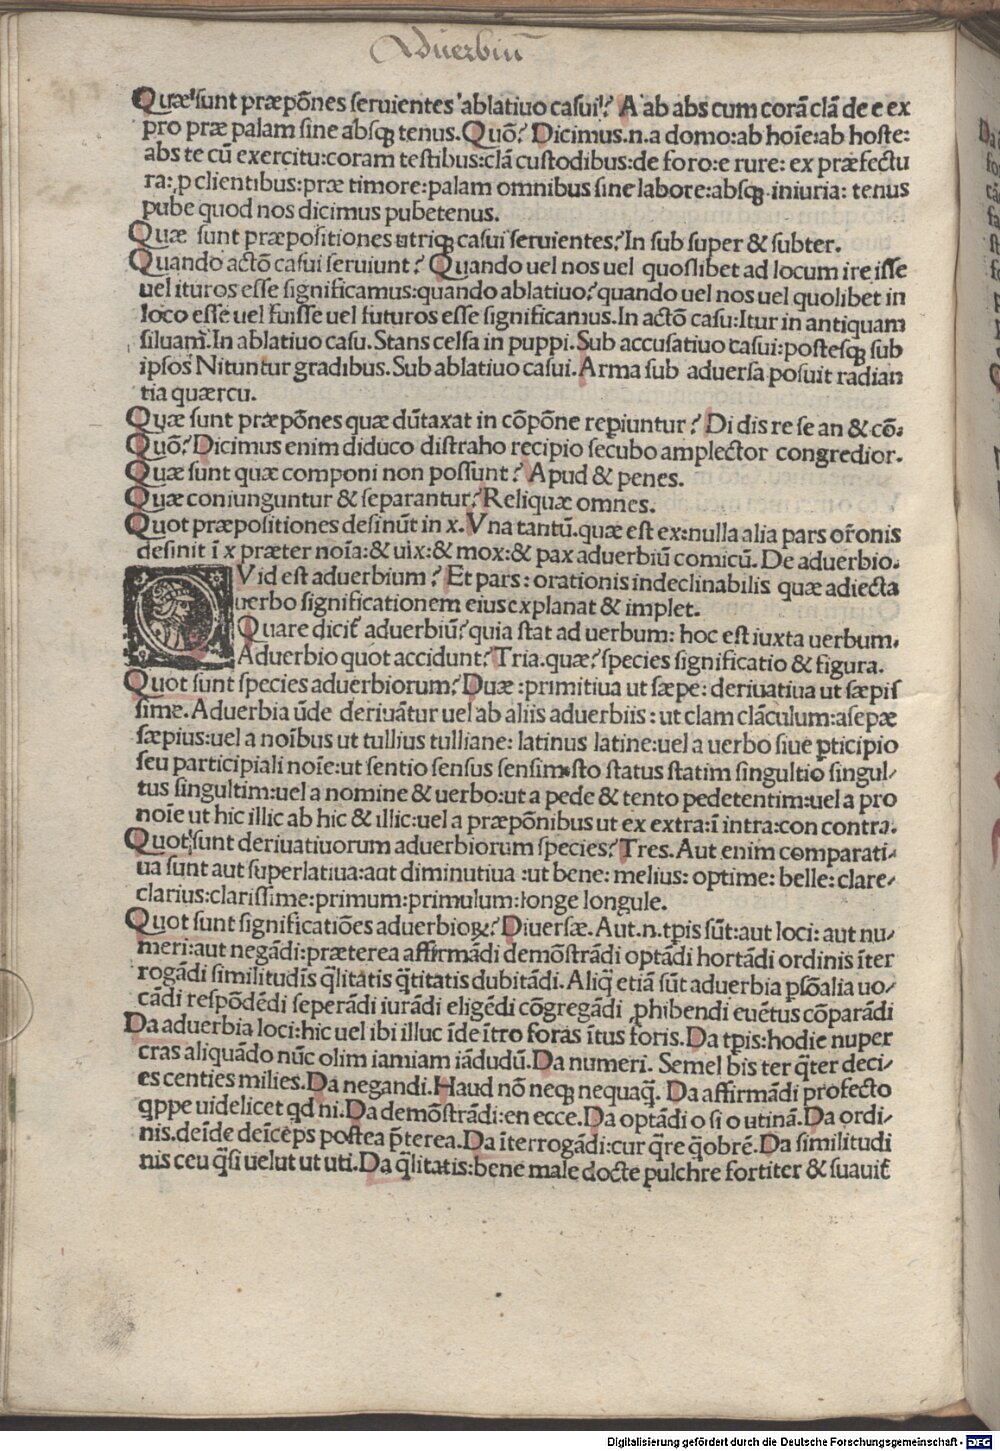 Aduerbiū
Quæ sunt præpōnes seruientes ablatiuo casui? A ab abs cum corā clā de e ex
pro præ palam sine absq; tenus. Quō? Dicimus.n.a domo:ab hoīe:ab hoste:
abs te cū exercitu:coram testibus:clā custodibus:de foro:e rure: ex præfectu
ra:ꝓ clientibus:præ timore:palam omnibus sine labore:absq; iniuria: tenus
pube quod nos dicimus pubetenus.
Quæ sunt præpositiones utriq; casui seruientes? In sub super & subter.
Quando actō casui seruiunt? Quando uel nos uel quoslibet ad locum ire isse
uel ituros esse significamus:quando ablatiuo? quando uel nos uel quolibet in
loco esse uel fuisse uel futuros esse significamus. In actō casu:Itur in antiquam
siluam. In ablatiuo casu. Stans celsa in puppi. Sub accusatiuo casui:postesq; sub
ipsos Nituntur gradibus. Sub ablatiuo casui. Arma sub aduersa posuit radian
tia quærcu.
Quæ sunt præpōnes quæ dūtaxat in cōpōne repiuntur? Di dis re se an & cō.
Quō? Dicimus enim diduco distraho recipio secubo amplector congredior.
Quæ sunt quæ componi non possunt? Apud & penes.
Quæ coniunguntur & separantur? Reliquæ omnes.
Quot præpositiones desinūt in x. Vna tantū. quæ est ex:nulla alia pars orōnis
desinit ī x præter noīa:& uix:& mox:& pax aduerbiū comicū. De aduerbio.
QVid est aduerbium? Et pars: orationis indeclinabilis quæ adiecta
uerbo significationem eius explanat & implet.
Quare dicit̄ aduerbiū? quia stat ad uerbum: hoc est iuxta uerbum.
Aduerbio quot accidunt? Tria. quæ? species significatio & figura.
Quot sunt species aduerbiorum? Duæ:primitiua ut sæpe: deriuatiua ut sæpis
sime. Aduerbia ūde deriuātur uel ab aliis aduerbiis: ut clam clāculum:a sepæ
sæpius:uel a noībus ut tullius tulliane: latinus latine:uel a uerbo siue ꝑticipio
seu participiali noīe:ut sentio sensus sensim:sto status statim singultio singul⸗
tus singultim:uel a nomine & uerbo:ut a pede & tento pedetentim:uel a pro
noīe ut hic illic ab hic & illic:uel a præpōnibus ut ex extra:ī intra:con contra.
Quot sunt deriuatiuorum aduerbiorum species? Tres. Aut enim comparati⸗
ua sunt aut superlatiua:aut diminutiua:ut bene: melius: optime: belle: clare⸗
clarius:clarissime:primum:primulum:longe longule.
Quot sunt significatiōes aduerbioꝝ? Diuersæ. Aut.n.tꝑis sūt:aut loci: aut nu⸗
meri:aut negādi:præterea affirmādi demōstrādi optādi hortādi ordinis īter
rogādi similitudīs q̄litatis q̄titatis dubitādi. Aliq̄ etiā sūt aduerbia ꝑsōalia uo⸗
cādi respōdēdi seperādi iurādi eligēdi cōgregādi ꝓhibendi euētus cōparādi
Da aduerbia loci:hic uel ibi illuc īde ītro foras ītus foris. Da tꝑis:hodie nuper
cras aliquādo nūc olim iamiam iādudū. Da numeri. Semel bis ter q̄ter deci⸗
es centies milies. Da negandi. Haud nō neq; nequaq̄. Da affirmādi profecto
qppe uidelicet qd ni. Da demōstrādi:en ecce. Da optādi o si o utinā. Da ordi⸗
nis.deīde deīceps postea p̄terea. Da īterrogādi:cur q̄re q̄obrē. Da similitudi
nis ceu q̄si uelut ut uti. Da q̄litatis:bene male docte pulchre fortiter & suauit̄
Digitalisierung gefördert durch die Deutsche Forschungsgemeinschaft - DFG